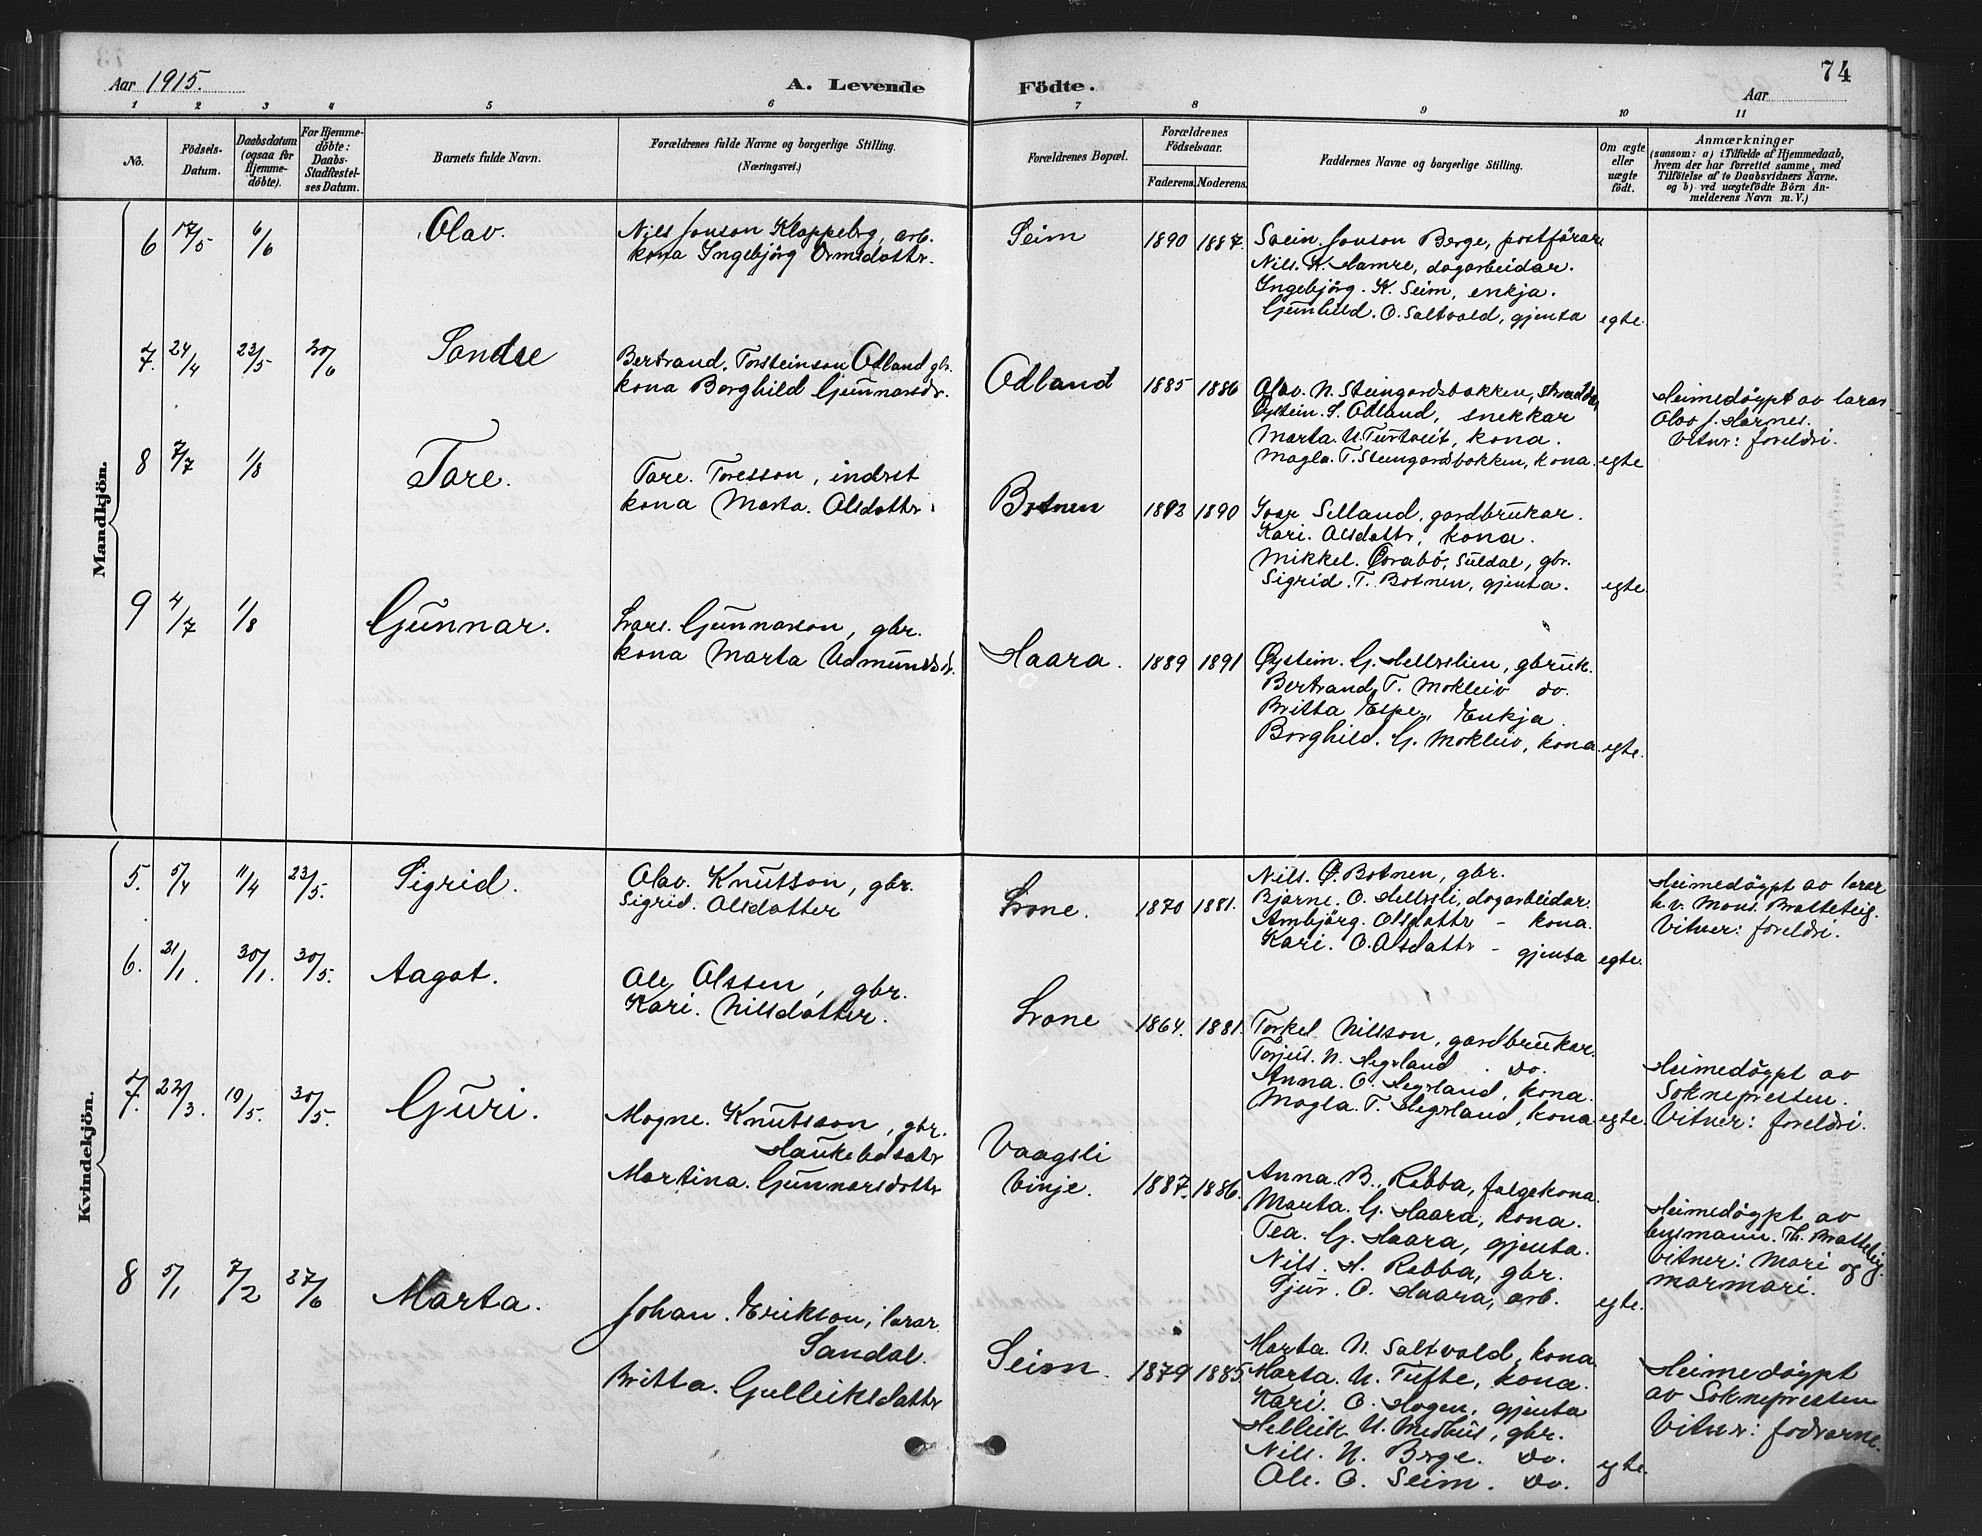 74
Aar 1915.
A. Levende Födte.
Aar
1 2 3 4 5 6 7 8 9 10 11
No.
Födsels-Datum.
Daabsdatum (ogsaa for Hjemme-döbte).
For Hjemme-döbte: Daabs-Stadfæstel-ses Datum.
Barnets fulde Navn.
Forældrenes fulde Navne og borgerlige Stilling.
(Næringsvei.)
Forældrenes Bopæl.
Forældrenes Födselsaar.
Faderens. Moderens.
Faddernes Navne og borgerlige Stilling.
Om ægte eller uægte födt.
Anmærkninger
(saasom: a) i Tilfælde af Hjemmedaab,
hvem der har forrettet samme, med
Tilföielse af to Daabsvidners Navne.
og b) ved uægtefödte Börn An-
melderens Navn m. V.)
Mandkjön.
6 17/5 6/6 Olav.
Nils Jonson Kloppebrg, arb.
kona Ingebjörg Ormsdottr.
Seim 1890 1887.
Svein Jonson Berge, postförar
Nils. K. Hamre, dagarbeidar.
Ingebjörg. K. Seim, enkja.
Gunhild. O. Saltvold, gjenta egte.
7. 24/4 23/5 20/6 Sondre
Bertrand. Torsteinson Odland gbr.
kona Borghild Gunnarsdr.
Odland 1885 1886
Olav. N. Steingardsbakken,
Øystein. S. Odland, snekkar
Marta. N. Turtveit, kona.
Magla. T. Steingardsbakken, kona. egte
Heimedöypt av lærar
Olav J. Hárnes.
Vitnr: foreldri.
8 7/7 1/8 Tore.
Tore. Toresson, indrst
kona Marta. Olsdottr.
Botnen 1892 1890
Ivar Selland, gardbrukar.
Kari. Olsdottr, kona.
Mikkel. Ørabö, Suldal, gbr.
Sigrid. T. Botnen, gjenta. egte.
9 4/7 1/8 Gunnar.
Lars. Gunnarson, gbr.
kona Marta Udmundsdr.
Haara. 1889 1891
Øystein. G. Hellrslien, gbruk.
Bertrand T. Mokleiv do.
Britta Espe, Enkja.
Borghild. G. Mokleiv, kona. egte.
Kvindekjön.
5. 5/4 11/4 23/5. Sigrid.
Olav. Knutson, gbr.
Sigrid. Olsdotter
Lrone. 1870 1881.
Nils. Ø. Botnen, gbr.
Bjarne. O. Hellrsli, dagarbeidar.
Ambjörg. Olsdottr - kona.
Kari. O. Olsdottr - gjenta egte.
Heimedöypt av lærar
h.v. Mons. Bratteteig.
Vitner: foreldri.
6. 21/1. 30/1. 30/5. Aagot.
Ole Olssen, gbr.
Kari. Nilsdotter.
Lrone 1864. 1881.
Torkel Nilsson, gardbrukar.
Torjus. N. Hegrland. do.
Anna. O. Hegrland, kona.
Magla. T. Hegrland, kona. egte.
Heimedöypt av
Soknepresten.
Vitner: foreldri.
7. 22/3. 19/5. 30/5. Guri.
Mogne. Knutsson, gbr.
Haukeli
Martina. Gunnarsdottr
Vaagsli
Vinje. 1887. 1886.
Anna. B. Rabba, folgekona.
Marta. G. Haara, kona.
Tea. G. Haara, gjenta.
Nils. H. Rabba, gbr.
Sjur. O. Haara, arb. egte.
Heimedöypt av
lensmann. Th. Bratteteig.
Vitner: Mari og
mormori.
8 5/1 7/2 27/6 Marta.
Johan. Erikson, lærar.
Sandal.
Britta. Gulleiksdottr
Seim. 1879 1885
Marta. N. Saltvold, kona
Marta. N. Tufte, kona.
Kari. O. Hagen, gjenta
Helleik N. Medhus, gbr.
Nils. N. Brge. do.
Ole. O. Seim. do. egte.
Heimedöypt
av Soknepresten
Vitnr: fodrarne.